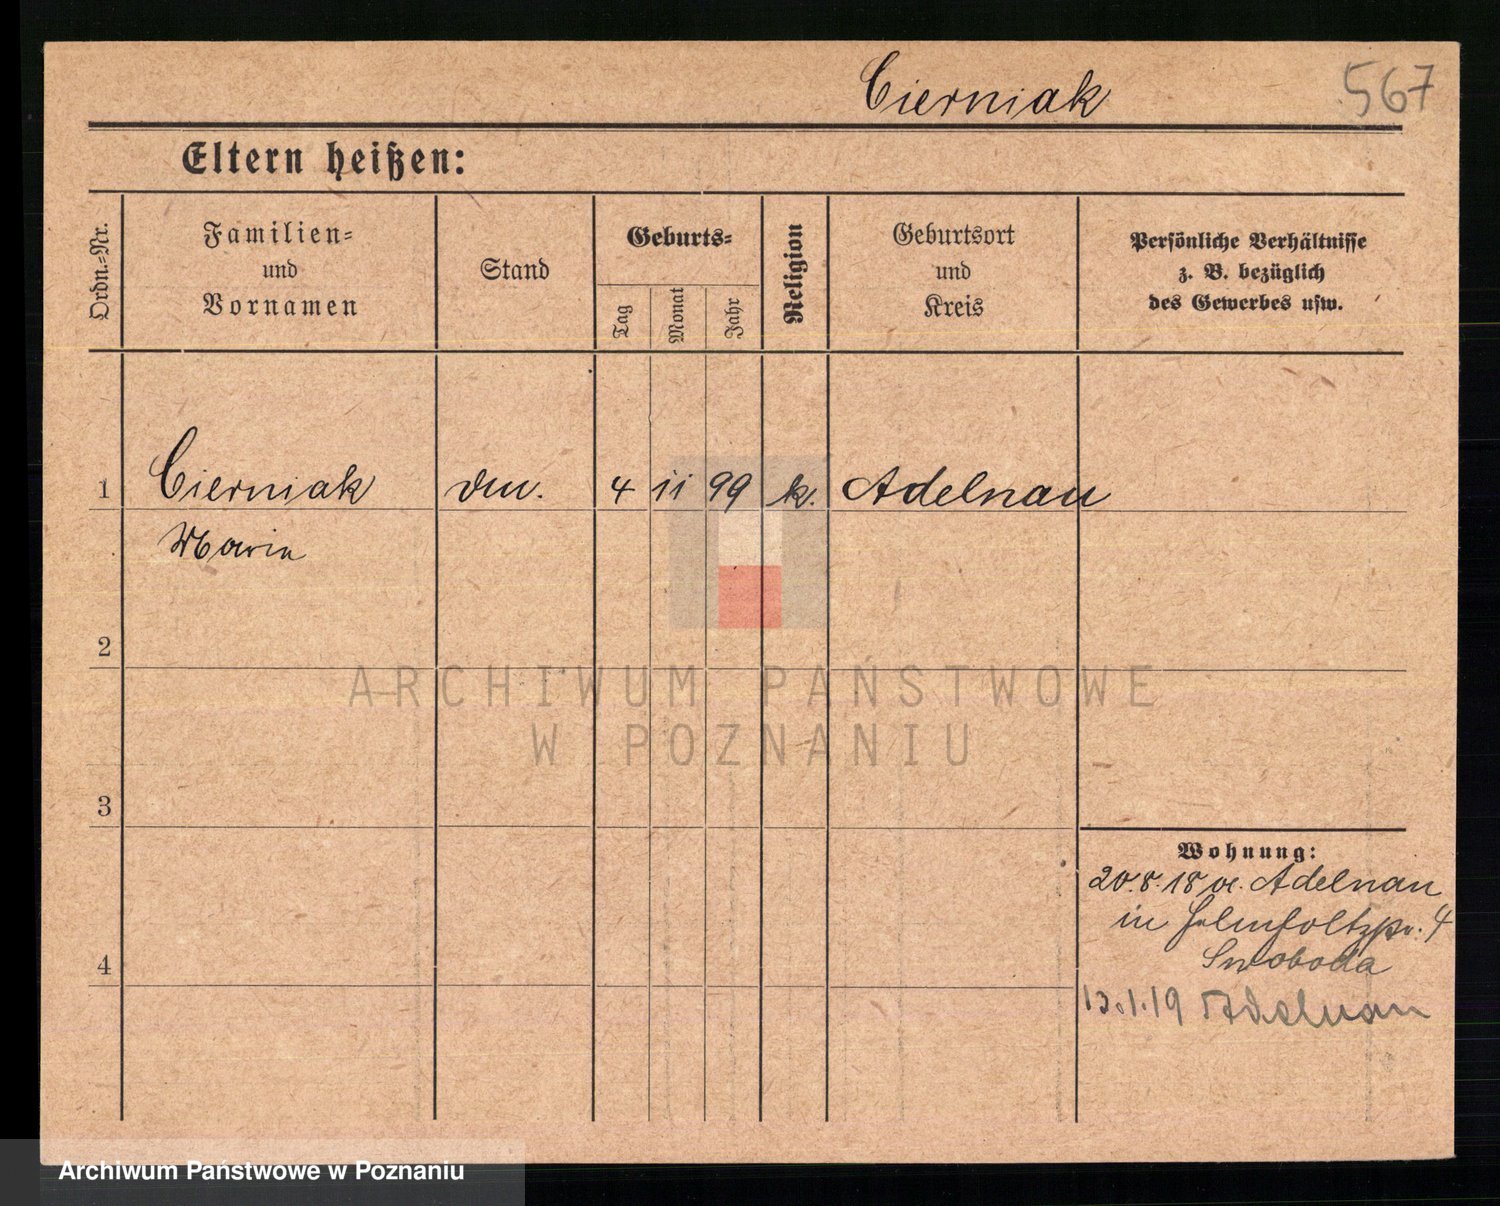 Cierniak 567
Eltern heißen:
Ordn.=Nr.
Familien=
und
Vornamen
Stand
Geburts=
Tag
Monat
Jahr
Religion
Geburtsort
und
Kreis
Persönliche Verhältnisse
z. B. bezüglich
des Gewerbes usw.
1 Cierniak 4 11 99 k. Adelnau
Maria
2
3
4
Wohnung:
20.8.18 Adelnau
in 4
Swoboda
13.1.19 Adelnau
ARCHIWUM PAŃSTWOWE
W POZNANIU
Archiwum Państwowe w Poznaniu